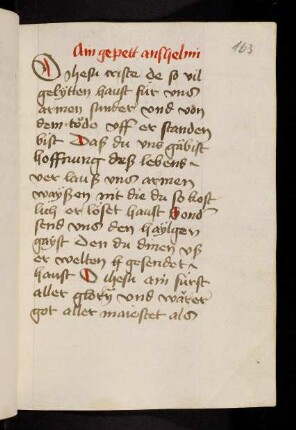 163
Ain gepett anshelmi
O ihesu criste de so vil
gelytten haust für vns
armen sünder vnd von
dem töde vff er standen
bist Daß du vns gäbist
hoffnung deß lebens
ver lauß vns armen
waysßen nit die du so kost
lich er löset haust Sond
send vns den haylgen
gayst Den du dinen vß
er welten h gesendet
haust O ihesu ain fürst
aller glory vnd wärer
got aller maiestet als